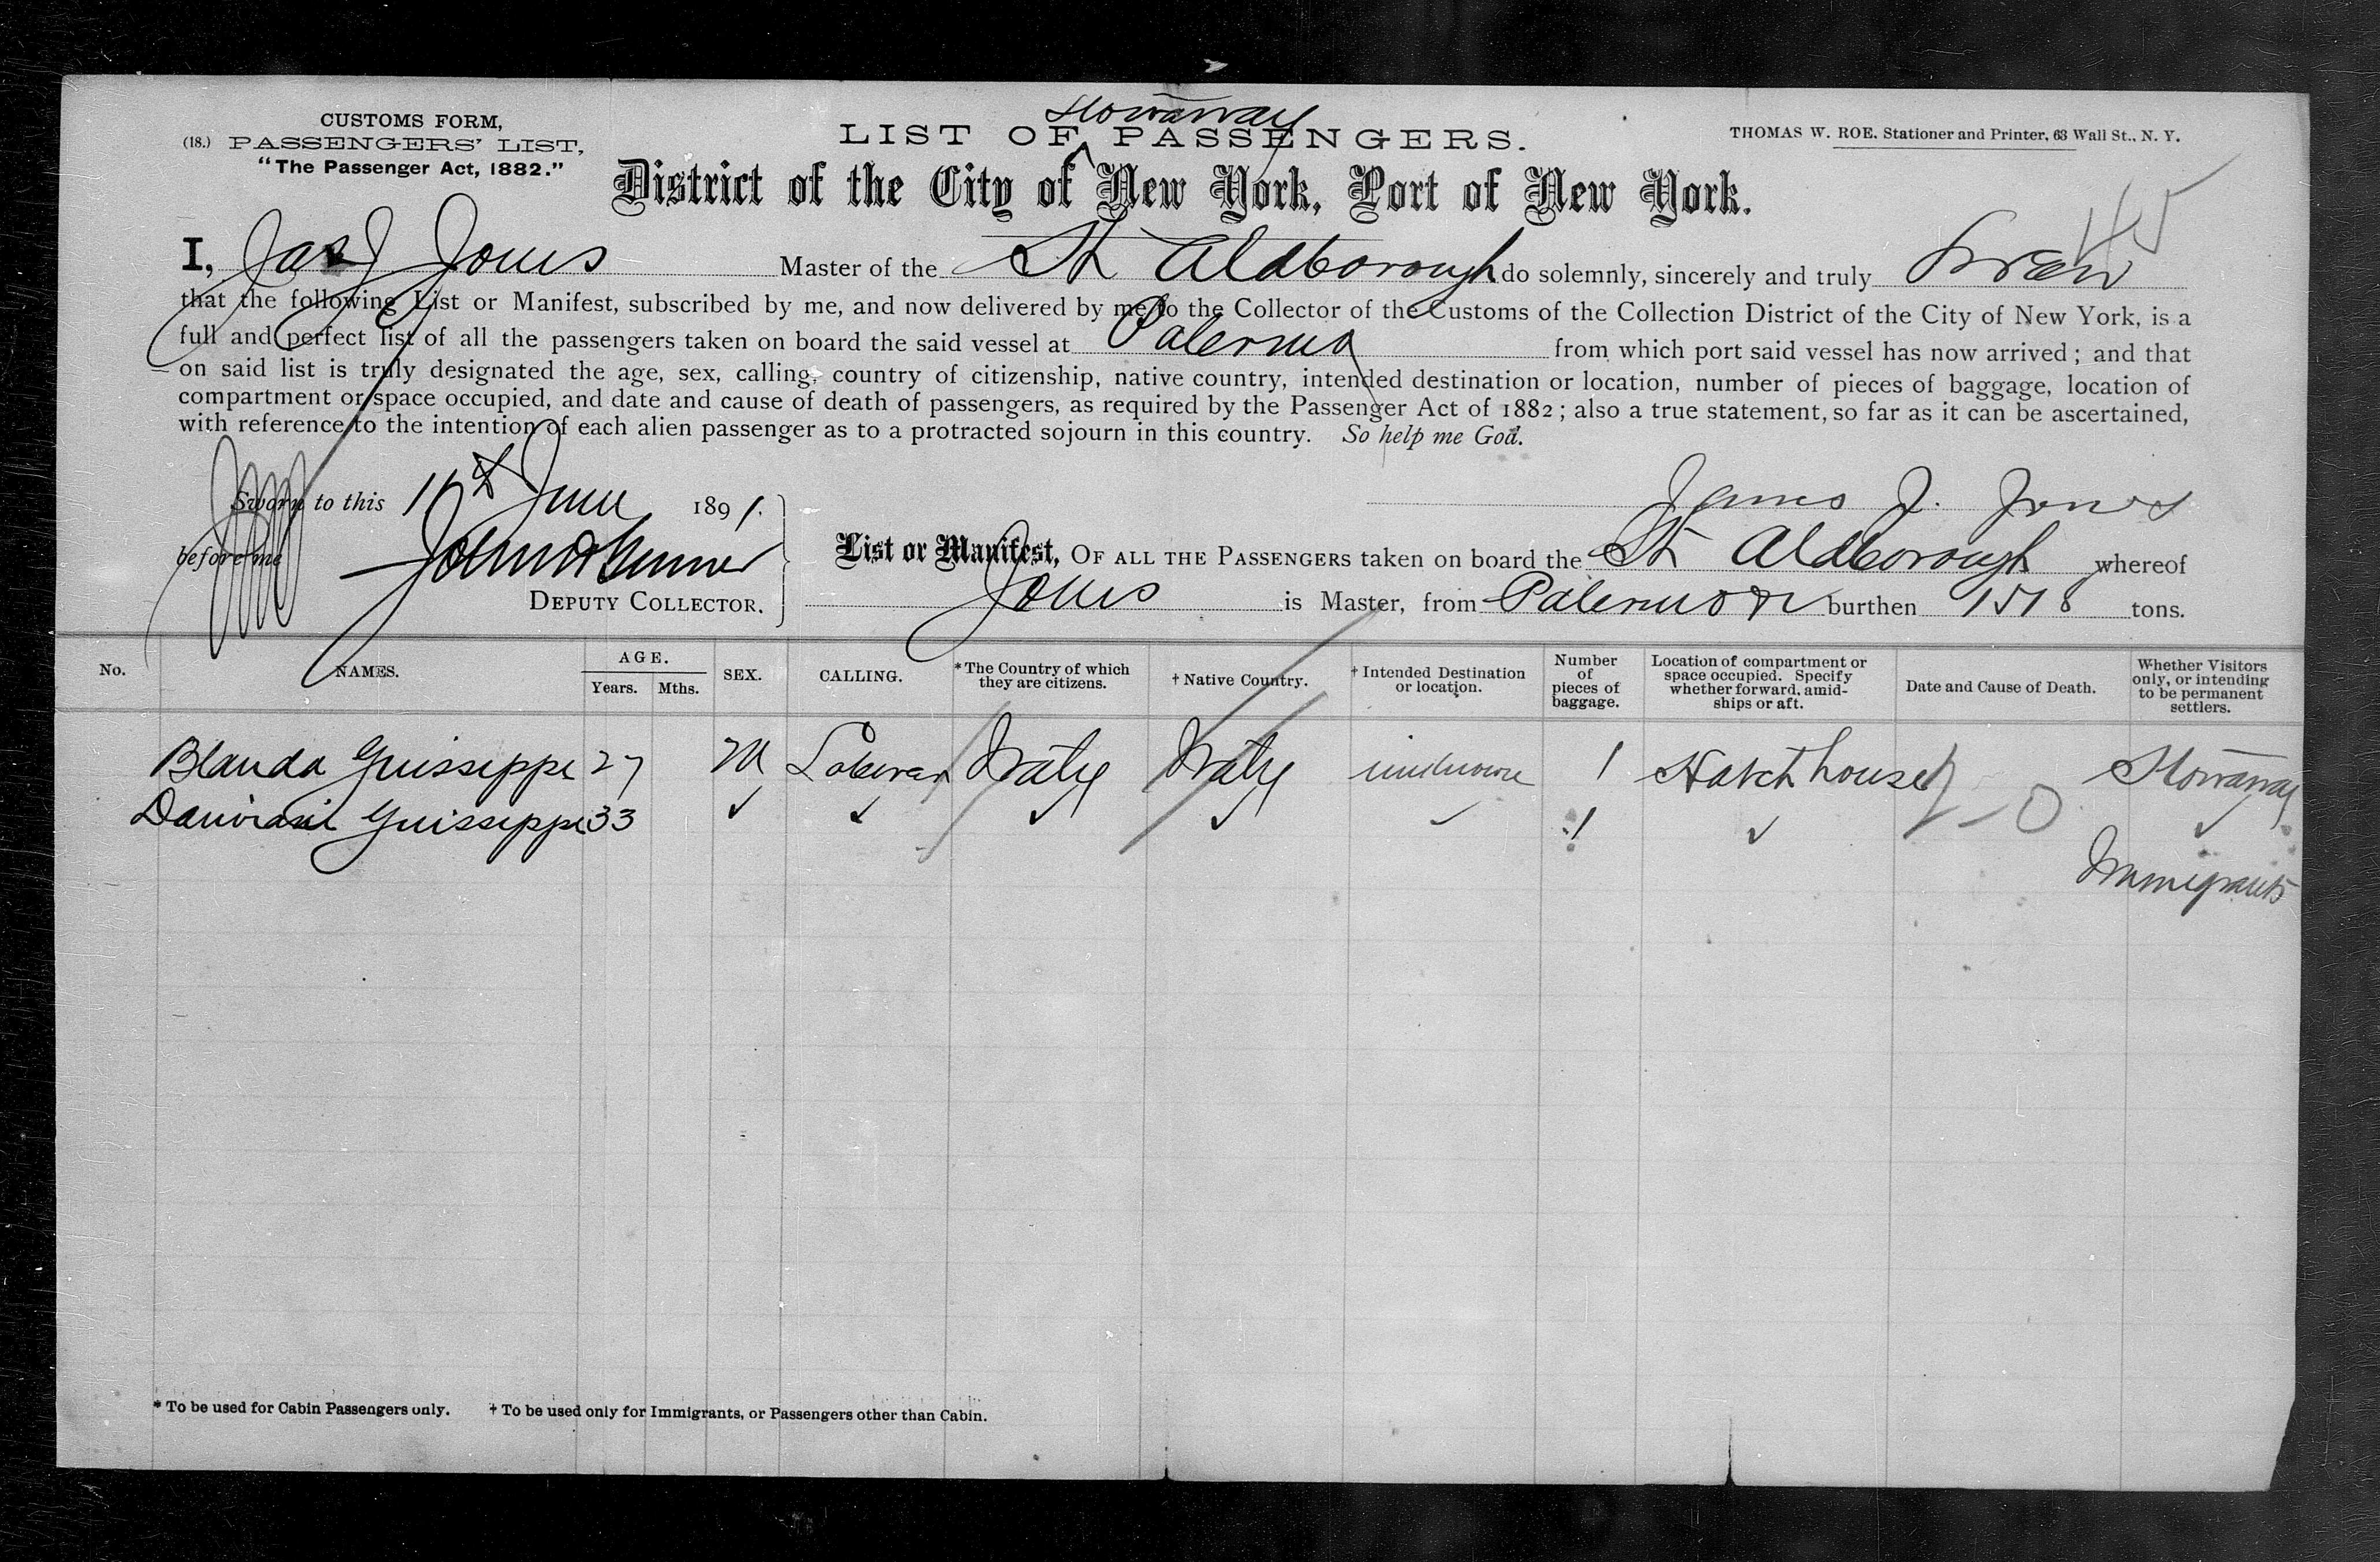 CUSTOMS FORM,
(18.) PASSENGERS' LIST,
"The Passenger Act, 1882."
Stowaway
LIST OF PASSENGERS.
THOMAS W. ROE. Stationer and Printer, 63 Wall St., N. Y.
District of the City of New York, Port of New York.
45
I, Jas J Jones Master of the Str Aldborough do solemnly, sincerely and truly swear
that the following List or Manifest, subscribed by me, and now delivered by me to the Collector of the Customs of the Collection District of the City of New York, is a
full and perfect list of all the passengers taken on board the said vessel at Palermo from which port said vessel has now arrived; and that
on said list is truly designated the age, sex, calling, country of citizenship, native country, intended destination or location, number of pieces of baggage, location of
compartment or space occupied, and date and cause of death of passengers, as required by the Passenger Act of 1882; also a true statement, so far as it can be ascertained,
with reference to the intention of each alien passenger as to a protracted sojourn in this country. So help me God.
Sworn to this 11th June 1891.
James J. Jones
before me
DEPUTY COLLECTOR.
List or Manifest, OF ALL THE PASSENGERS taken on board the Str Aldborough whereof
Jones is Master, from Palermo &c burthen 1518 tons.
No. NAMES. AGE. Years. Mths. SEX. CALLING. *The Country of which they are citizens. † Native Country. † Intended Destination or location. Number of pieces of baggage. Location of compartment or space occupied. Specify whether forward, amidships or aft. Date and Cause of Death. Whether Visitors only, or intending to be permanent settlers.
Blanda Guisseppe 27 M Laborer Italy Italy unknown 1 Hatch house Stowaway
Guisseppe 33 ✓ ✓ ✓ ✓ ✓ 1 ✓ ✓
2-0
Immigrants
* To be used for Cabin Passengers only. † To be used only for Immigrants, or Passengers other than Cabin.